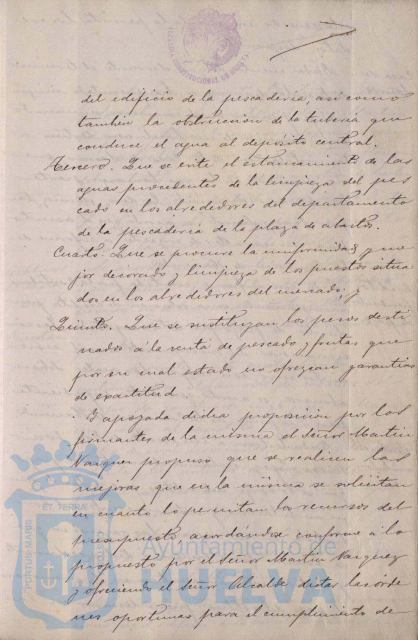 del edificio de la pescadería, así como
también la obstrucción de la tubería que
conduce el agua al depósito central.
Tercero. Que se evite el estancamiento de las
aguas procedentes de la limpieza del pes
cado en los alrededores del departamento
de la pescadería de la plaza de abastos.
Cuarto. Que se procure la uniformidad y me
jor decorado y limpieza de los puestos situa
dos en los alrededores del mercado, y
Quinto. Que se sustituyan los pesos desti
nados á la venta de pescado y frutas que
por su mal estado no ofrezcan garantías
de exactitud.
Y apoyada dicha proposición por los
firmantes de la misma el Señor Martin
Vazquez propuso que se realicen las
mejoras que en la misma se solicitan
en cuanto lo permitan los recursos del
presupuesto acordándose conforme á lo
propuesto por el Señor Martin Vazquez
y ofreciendo el Señor Alcalde dictar las órde
nes oportunas para el cumplimiento de
Ayuntamiento de
HUELVA
PORTUS MARIS
ET TERRÆ